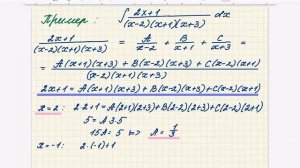 Пример: ∫ 2x+1 / (x-2)(x+1)(x+3) dx
2x+1 / (x-2)(x+1)(x+3) = A / x-2 + B / x+1 + C / x+3 =
= A(x+1)(x+3) + B(x-2)(x+3) + C(x-2)(x+1) / (x-2)(x+1)(x+3)
2x+1 = A(x+1)(x+3) + B(x-2)(x+3) + C(x-2)(x+1)
x=2: 2·2+1 = A(2+1)(2+3)+B(2-2)(2+3)+C(2-2)(2+1)
5 = A·3·5
15A = 5 => A = 1/3
x=-1: 2·(-1)+1